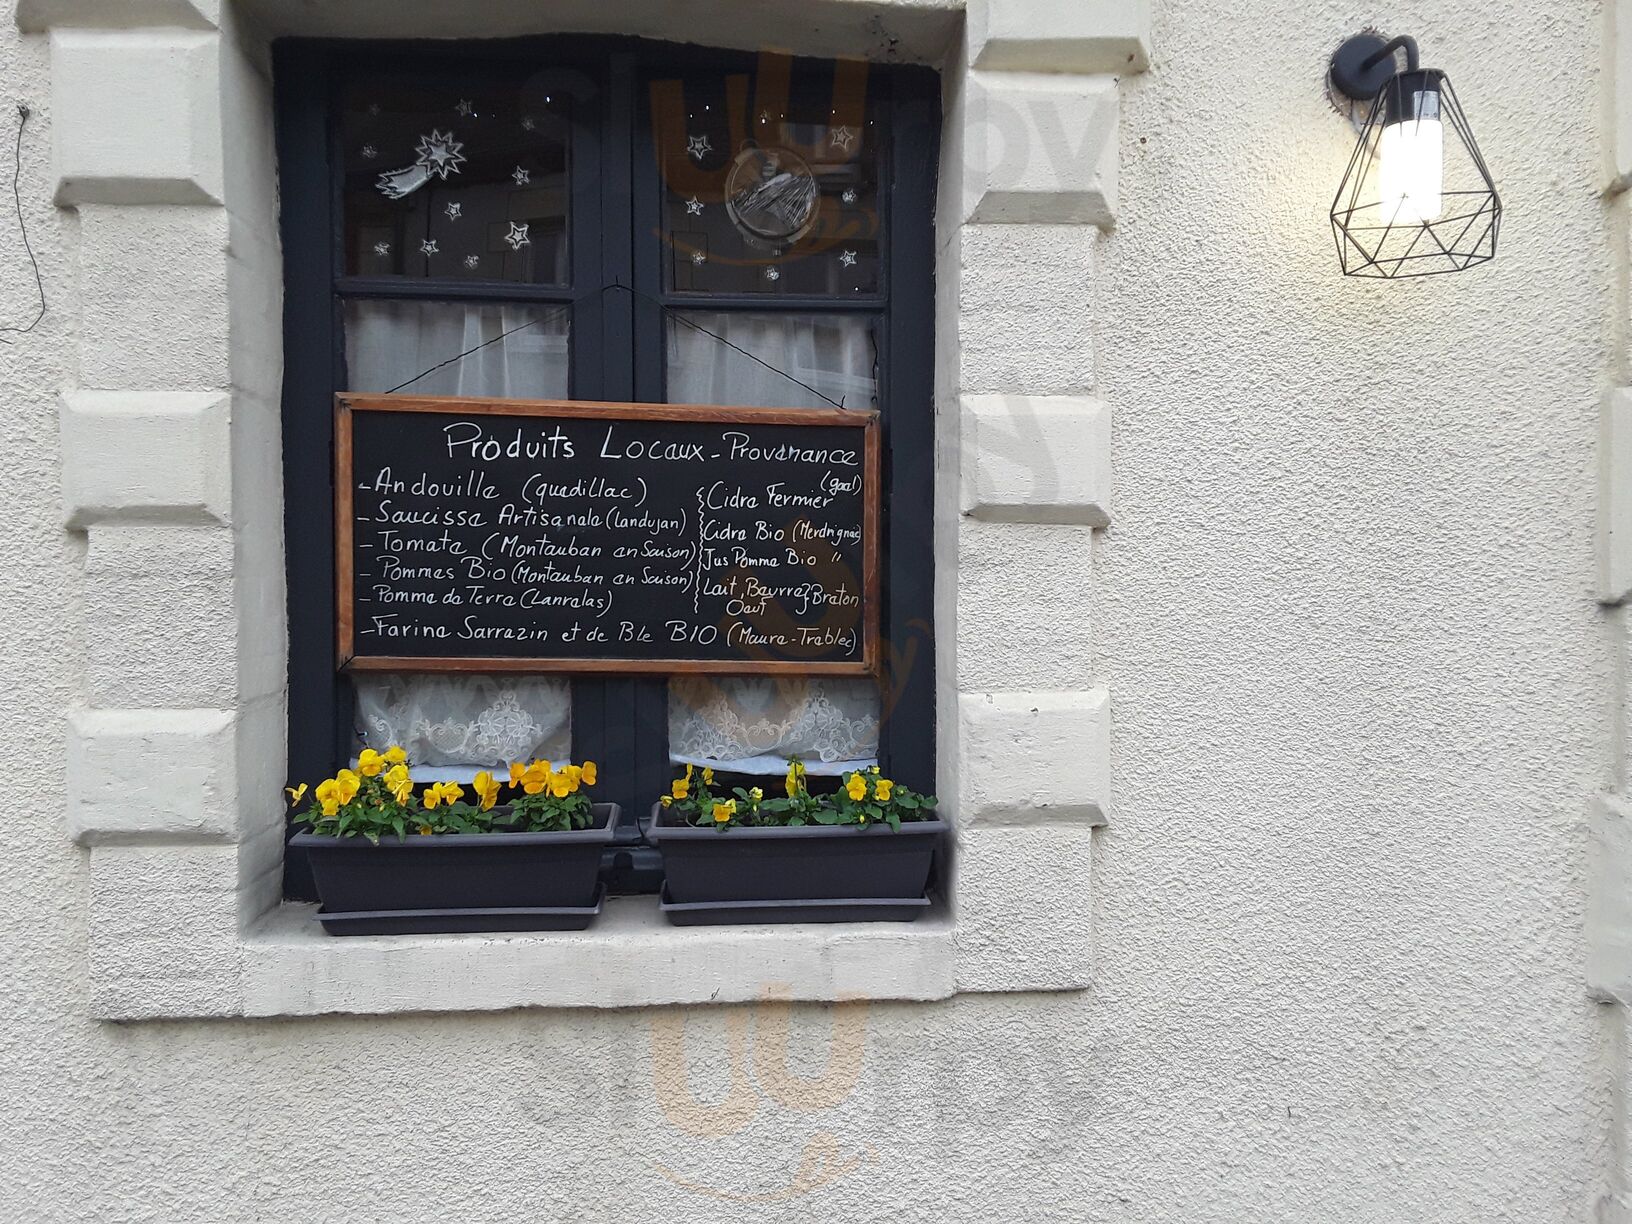 Produits Locaux - Provenance
- Andouille (quedillac)
- Saucisse Artisanale (Landujan)
- Tomate (Montauban en Saison)
- Pommes Bio (Montauban en Saison)
- Pomme de Terre (Lanrelas)
- Farine Sarrazin et de Ble BIO (Maure-Trablec)
Cidre Fermier (gael)
Cidre Bio (Merdrignac)
Jus Pomme Bio "
Lait, Beurre } Breton
Oeuf